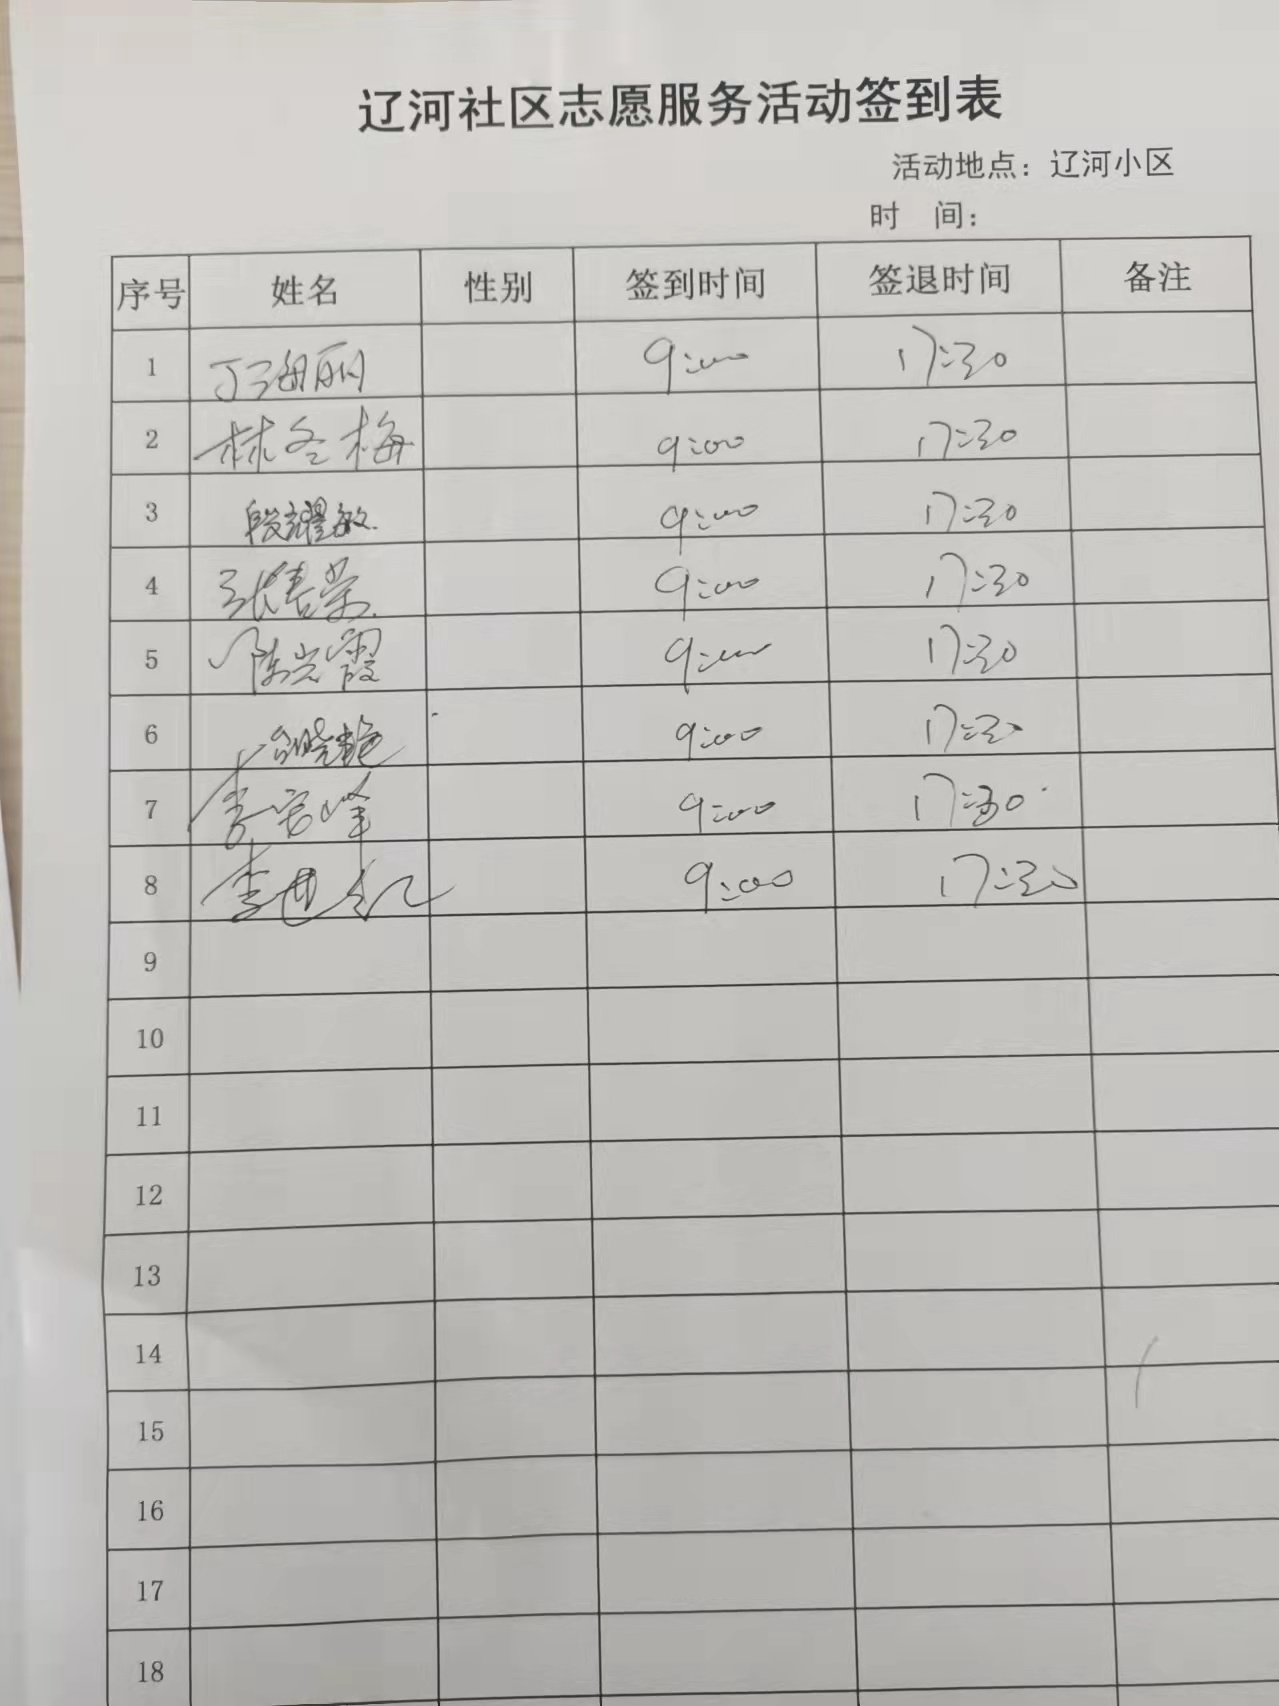 辽河社区志愿服务活动签到表
活动地点：辽河小区
时 间：
序号 姓名 性别 签到时间 签退时间 备注
1 丁海丽 9:00 17:30
2 林冬梅 9:00 17:30
3 段耀敏 9:00 17:30
4 张春荣 9:00 17:30
5 陈岩霞 9:00 17:30
6 9:00 17:30
7 李宏峰 9:00 17:30
8 李世红 9:00 17:30
9
10
11
12
13
14
15
16
17
18